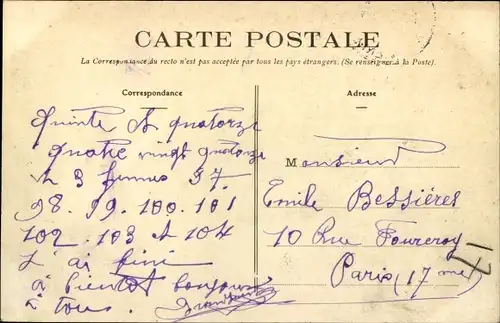 CARTE POSTALE
La Correspondance du recto n'est pas acceptée par tous les pays étrangers. (Se renseigner à la Poste).
Correspondance
Adresse
Quinte et quatorze
quatre vingt quatorze
et 3 femmes 97.
98. 99. 100. 101
102. 103 et 104
J'ai fini
à bientôt bonjour
à tous.
Monsieur
Emile Bessières
10 Rue Fourcroy
Paris (17me)